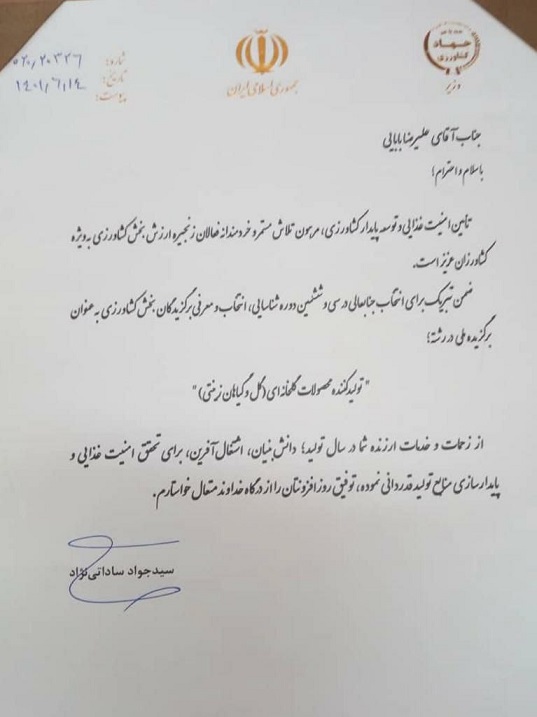 جهاد
کشاورزی
وزیر
جمهوری اسلامی ایران
شماره: ۰۲۰/۲۰۳۲۶
تاریخ: ۱۴۰۱/۶/۱۴
پیوست:
جناب آقای علیرضا بابایی
با سلام و احترام؛
تامین امنیت غذایی و توسعه پایدار کشاورزی، مرهون تلاش مستمر و خردمندانه فعالان زنجیره ارزش بخش کشاورزی به ویژه
کشاورزان عزیز است.
ضمن تبریک برای انتخاب جنابعالی در سی و ششمین دوره شناسایی، انتخاب و معرفی برگزیدگان بخش کشاورزی به عنوان
برگزیده ملی در رشته؛
" تولید کننده محصولات گلخانه ای (گل و گیاهان زینتی) "
از زحمات و خدمات ارزنده شما در سال تولید؛ دانش بنیان، اشتغال آفرین، برای تحقق امنیت غذایی و
پایدارسازی منابع تولید قدردانی نموده، توفیق روز افزونتان را از درگاه خداوند متعال خواستارم.
سید جواد ساداتی نژاد